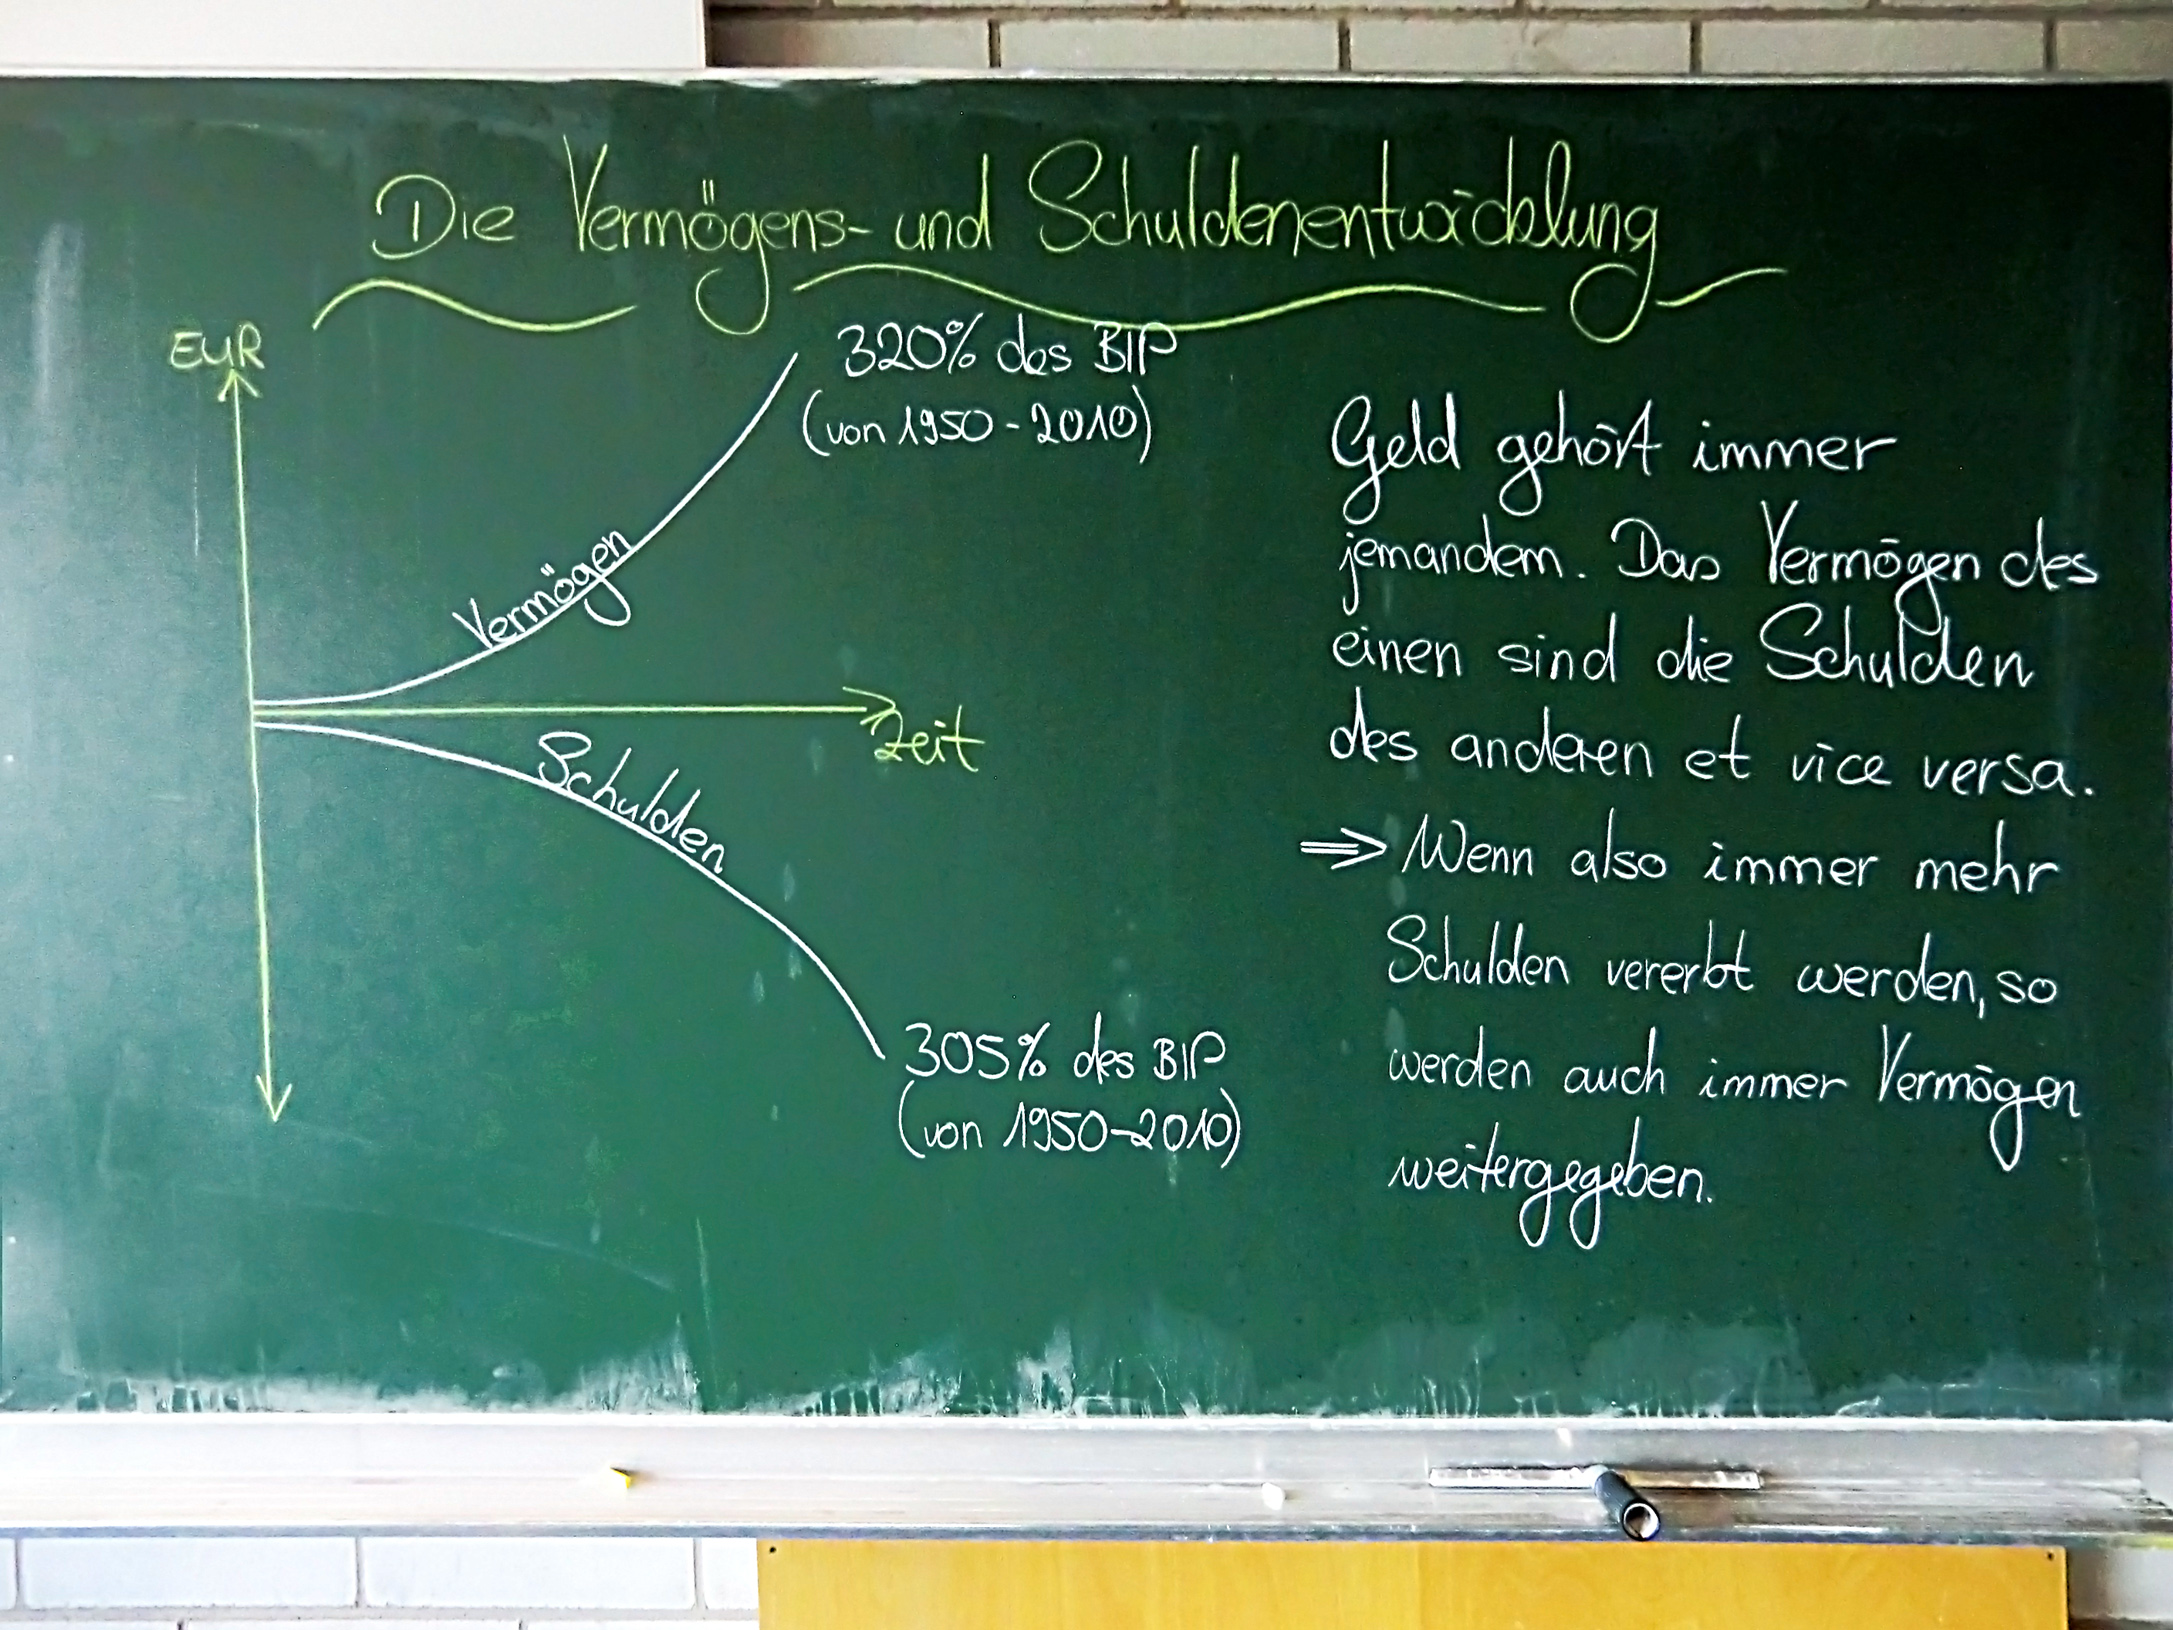 Die Vermögens- und Schuldenentwicklung
EUR
320% des BIP
(von 1950 - 2010)
Vermögen
Zeit
Schulden
305% des BIP
(von 1950-2010)
Geld gehört immer
jemandem. Das Vermögen des
einen sind die Schulden
des anderen et vice versa.
⇒ Wenn also immer mehr
Schulden vererbt werden, so
werden auch immer Vermögen
weitergegeben.